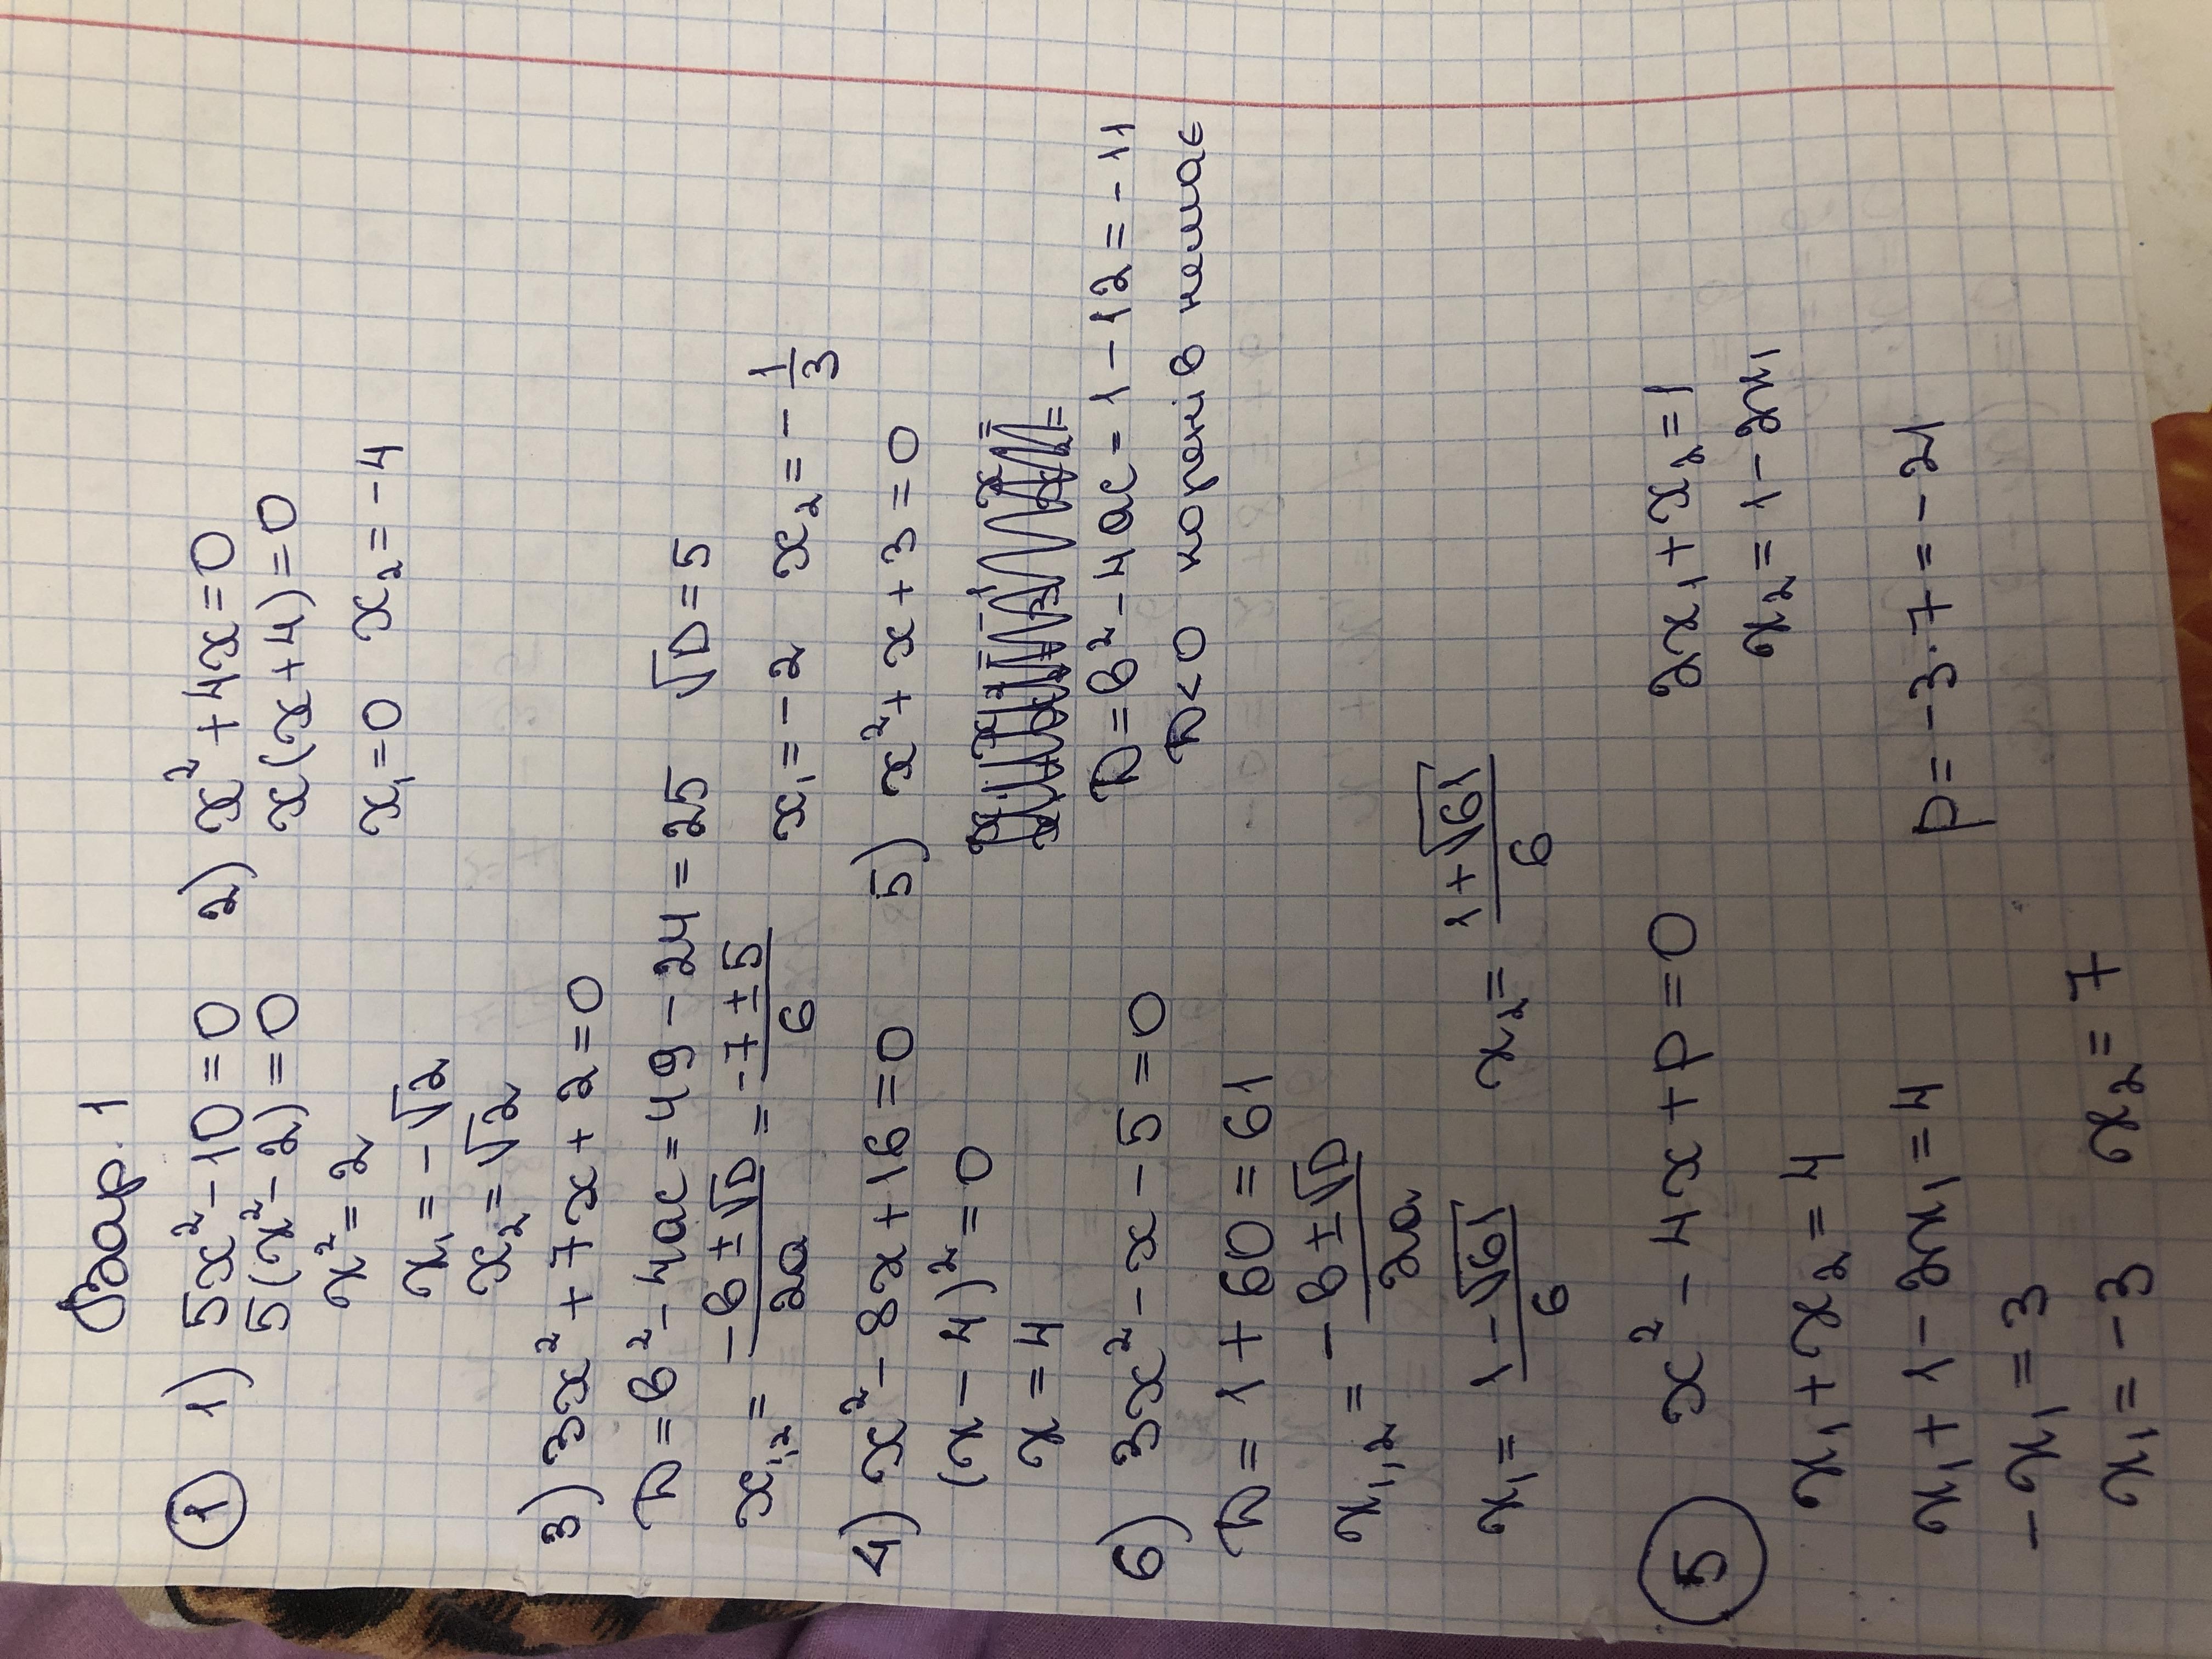 Вар. 1
① 1) 5x² - 10 = 0   2) x² + 4x = 0
5(x² - 2) = 0   x(x + 4) = 0
x² = 2   x₁ = 0   x₂ = -4
x₁ = -√2
x₂ = √2
3) 3x² + 7x + 2 = 0
D = b² - 4ac = 49 - 24 = 25   √D = 5
x₁,₂ = (-b ± √D)/2a = (-7 ± 5)/6   x₁ = -2   x₂ = -1/3
4) x² - 8x + 16 = 0   5) x² + x + 3 = 0
(x - 4)² = 0
x = 4   D = b² - 4ac - 1 - 12 = -11
D < 0   коренів немає
6) 3x² - x - 5 = 0
D = 1 + 60 = 61
x₁,₂ = (-b ± √D)/2a
x₁ = (1 - √61)/6   x₂ = (1 + √61)/6
⑤ x² - 4x + p = 0   2x₁ + x₂ = 1
x₁ + x₂ = 4   x₂ = 1 - 2x₁
x₁ + 1 - 2x₁ = 4
-x₁ = 3   p = -3·7 = -21
x₁ = -3   x₂ = 7